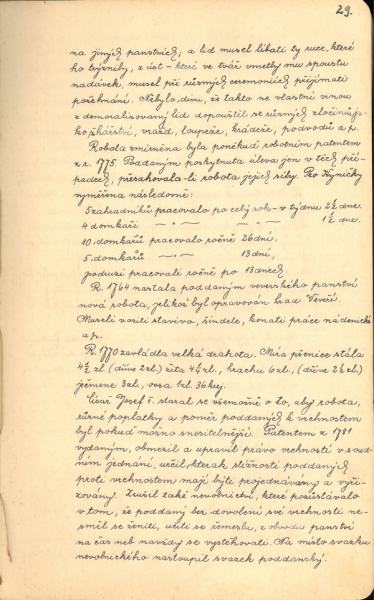 29.
na jiných panstvích, a lid musel líbati ty ruce, které
ho trýznily, z úst - které ve tvář vmetly mu spoustu
nadávek, musel při různých ceremoniích přijímati
požehnání. Nebylo divu, že takto ne vlastní vinou
zdemoralisovaný lid dopouštěl se různých zločinů, ja-
ko žhářství, vražd, loupeže, krádeže, podvodů a p.
Robota zmírněna byla poněkud robotním patentem
z r. 1775. Poddaným poskytnuta úleva jen v těch pří-
padech, přesahovala-li robota jejich síly. Pro Kyničky
vyměřena následovně:
5 zahradníků pracovalo po celý rok - v týdnu 2½ dne.
4 domkaři — " — — " — 1½ dne.
10. domkářů pracovalo ročně 26 dní.
5. domkářů — " — 13 dní,
podruzi pracovali ročně po 13 dnech.
R. 1764 nastala poddaným veverského panství
nová robota, jelikož byl opravován hrad Veveří.
Museli voziti staviva, šindele, konati práce nádenické
a p.
R. 1770 zavládla velká drahota. Míra pšenice stála
4½ zl. (dříve 2 zl.) žita 4½ zl., hrachu 6 zl., (dříve 2½ zl.)
ječmene 3 zl., ovsa 1 zl. 36 krej.
Císař Josef II. staral se všemožně o to, aby robota,
různé poplatky a poměr poddaných k vrchnostem
byl pokud možno snesitelnější. Patentem z r. 1781
vydaným, obmezil a upravil právo vrchností v soud-
ním jednání, určil, kterak stížnosti poddaných
proti vrchnostem mají býti projednávány a vyři-
zovány. Zrušil také nevolnictví, které pozůstávalo
v tom, že poddaný bez dovolení své vrchnosti ne-
směl se ženiti, učiti se řemeslu, z obvodu panství
na čas neb navždy se vystěhovati. Na místo svazku
nevolnického nastoupil svazek poddanský.